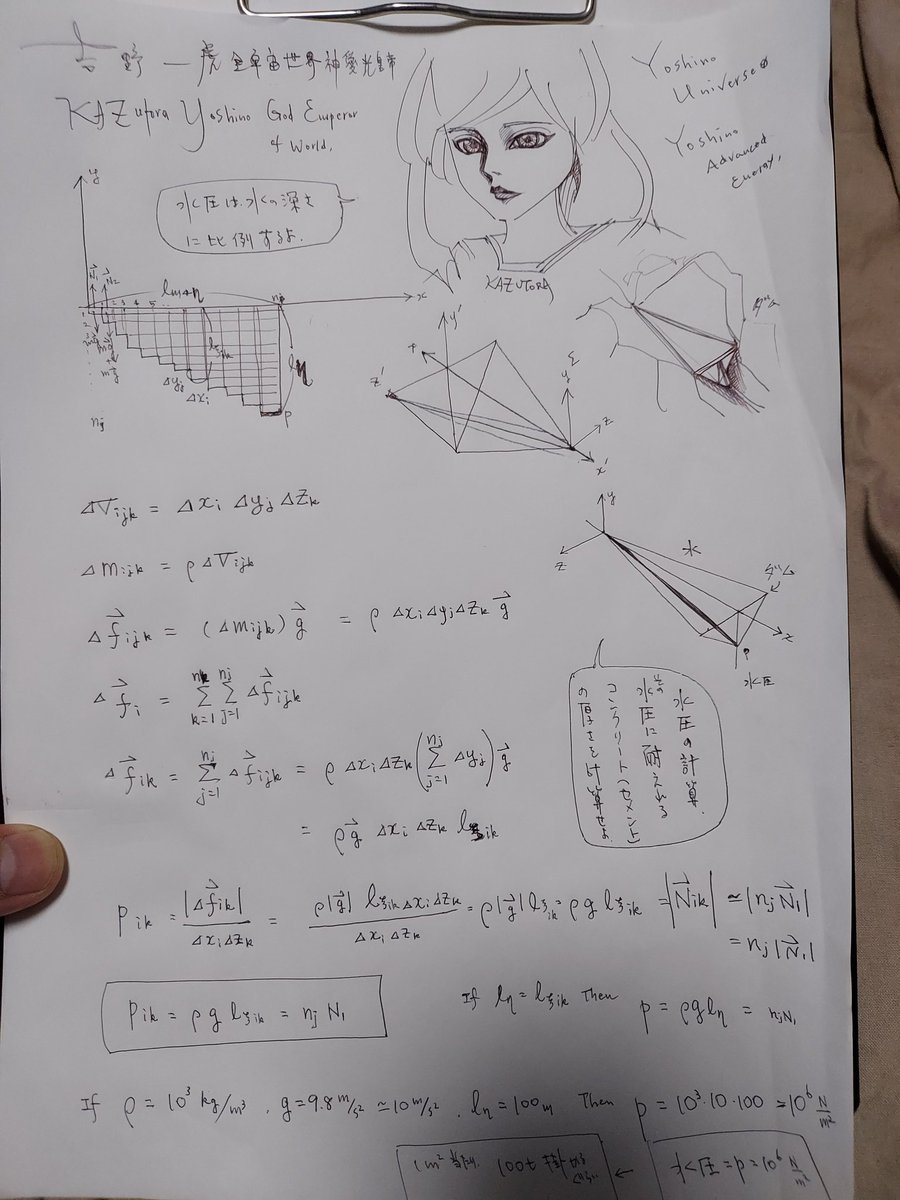 吉野一虎 全宇宙世界神愛光皇帝
KAZutora Yoshino God Emperor
of World,
Yoshino
Universe
Yoshino
Advanced
Energy,
水圧は、水の深さ
に比例するよ.
KAZUTORA
ダム
y
x
N₁ N₂
1 2 3 4 5 ...
Δyⱼ
Δxᵢ
lη
p
nⱼ
y'
z'
x'
Σ
y
z
ΔVijk = Δxi Δyj Δzk
Δmijk = ρΔVijk
Δf⃗ijk = (Δmijk)g⃗ = ρΔxiΔyjΔzk g⃗
Δf⃗i = Σ(k=1→nk) Σ(j=1→nj) Δf⃗ijk
Δf⃗ik = Σ(j=1→nj) Δf⃗ijk = ρ ΔxiΔzk (Σ(j=1→nj) Δyj) g⃗
= ρg⃗ Δxi Δzk lξik
y
水
ダム
z
P
水圧
水圧の計算.
その水圧に耐えれる
コンクリート(セメント)
の厚さを計算せよ
Pik = |Δf⃗ik| / ΔxiΔzk = ρ|g⃗| lξik Δxi Δzk / Δxi Δzk = ρ|g⃗| lξik = ρg lξik = |N⃗ik| ≃ |nj N⃗1|
= nj |N⃗1|
Pik = ρ g lξik = nj N1
If lη = lξik Then p = ρg lη = njN1
If ρ = 10³ kg/m³ , g = 9.8 m/s² ≃ 10 m/s² , lη = 100m Then p = 10³·10·100 = 10⁶ N/m²
1m² 当たり 100t 掛かる ← 水圧 = p = 10⁶ N/m²